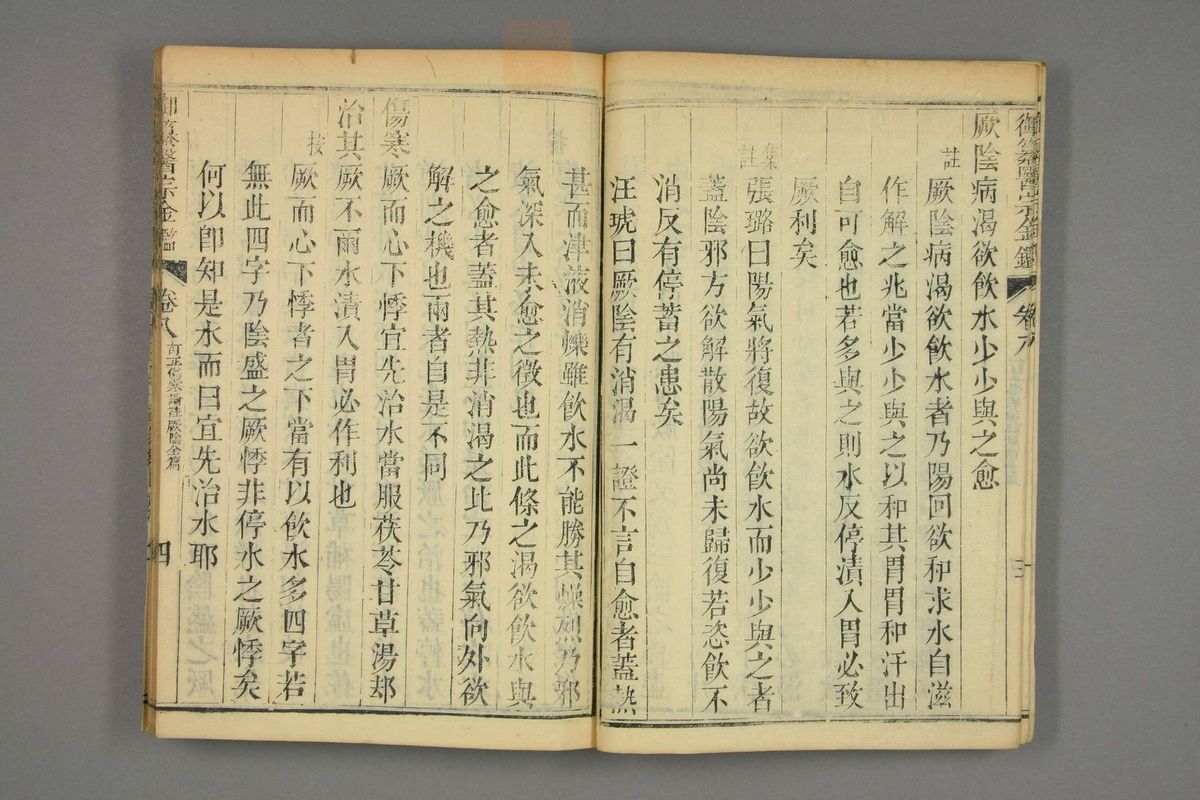 御纂醫宗金鑑 卷八 三
厥陰病渴欲飲水少少與之愈
註
厥陰病渴欲飲水者乃陽回欲和求水自滋
作解之兆當少少與之以和其胃胃和汗出
自可愈也若多與之則水反停漬入胃必致
厥利矣
集註
張璐曰陽氣將復故欲飲水而少少與之者
蓋陰邪方欲解散陽氣尚未歸復若恣飲不
消反有停蓄之患矣
汪琥曰厥陰有消渴一證不言自愈者蓋熱
甚而津液消爍雖飲水不能勝其燥烈乃邪
氣深入未愈之徵也而此條之渴欲飲水與
之愈者蓋其熱非消渴之比乃邪氣向外欲
解之機也兩者自是不同
傷寒厥而心下悸宜先治水當服茯苓甘草湯却
治其厥不爾水漬入胃必作利也
按
厥而心下悸者之下當有以飲水多四字若
無此四字乃陰盛之厥悸非停水之厥悸矣
何以卽知是水而曰宜先治水耶
御纂醫宗金鑑 卷八 訂正傷寒論註厥陰全篇 四